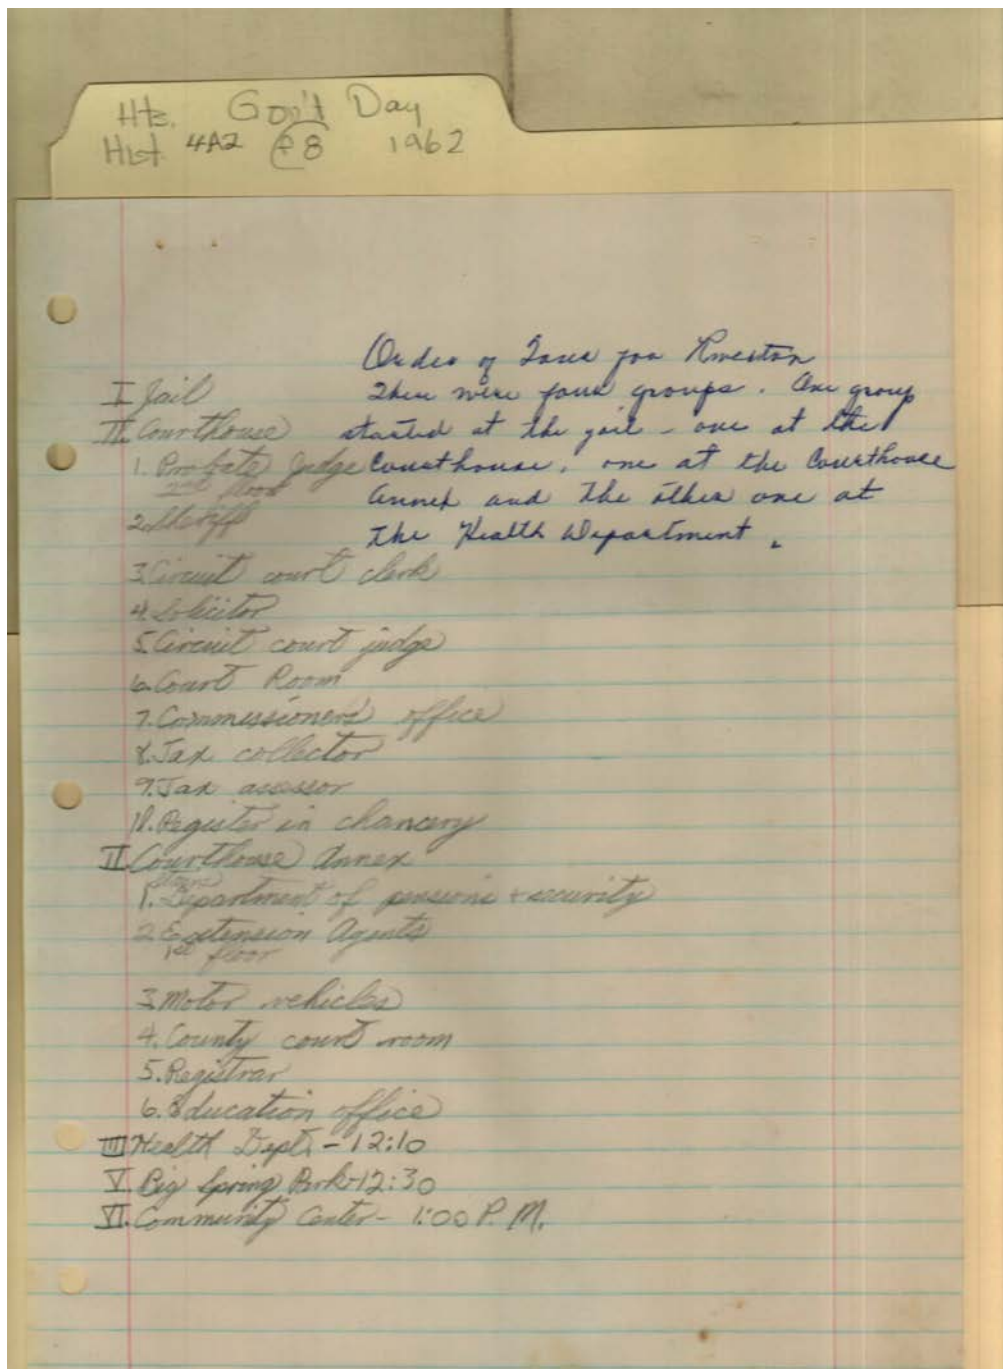 Hts. Gov't Day
Hist 4A2 f8 1962
Order of Tour for
I Jail
There were four groups. One group
II. Courthouse
started at the jail - one at the
1. Probate Judge
Courthouse, one at the Courthouse
2nd floor
Annex and the other one at
2. Sheriff
the Health Department.
3. Circuit court clerk
4. Solicitor
5. Circuit court judge
6. Court Room
7. Commissioners' office
8. Tax collector
9. Tax assessor
10. Register in chancery
II Courthouse Annex
1. Department of pensions + security
2. Extension Agents
1st floor
3. Motor vehicles
4. County court room
5. Registrar
6. Education office
III Health Dept. - 12:10
V. Big Spring Park - 12:30
VI. Community Center - 1:00 P.M.